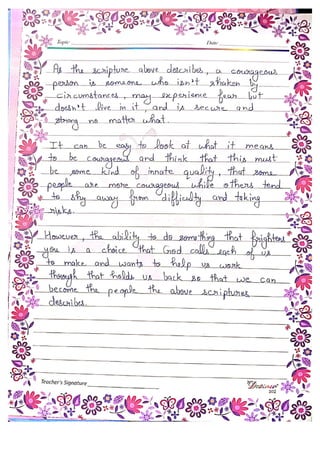 Topic
Date
As the scripture above describes, a courageous
person is someone who isn't shaken by
circumstances, may experience fear but
doesn't live in it, and is secure and
strong no matter what.
It can be easy to look at what it means
to be courageous and think that this must
be some kind of innate quality, that some
people are more courageous while others tend
to shy away from difficulty and taking
risks.
However, the ability to do something that frightens
you is a choice that God calls each of us
to make and wants to help us work
through that holds us back so that we can
become the people the above scriptures
describes.
Teacher's Signature